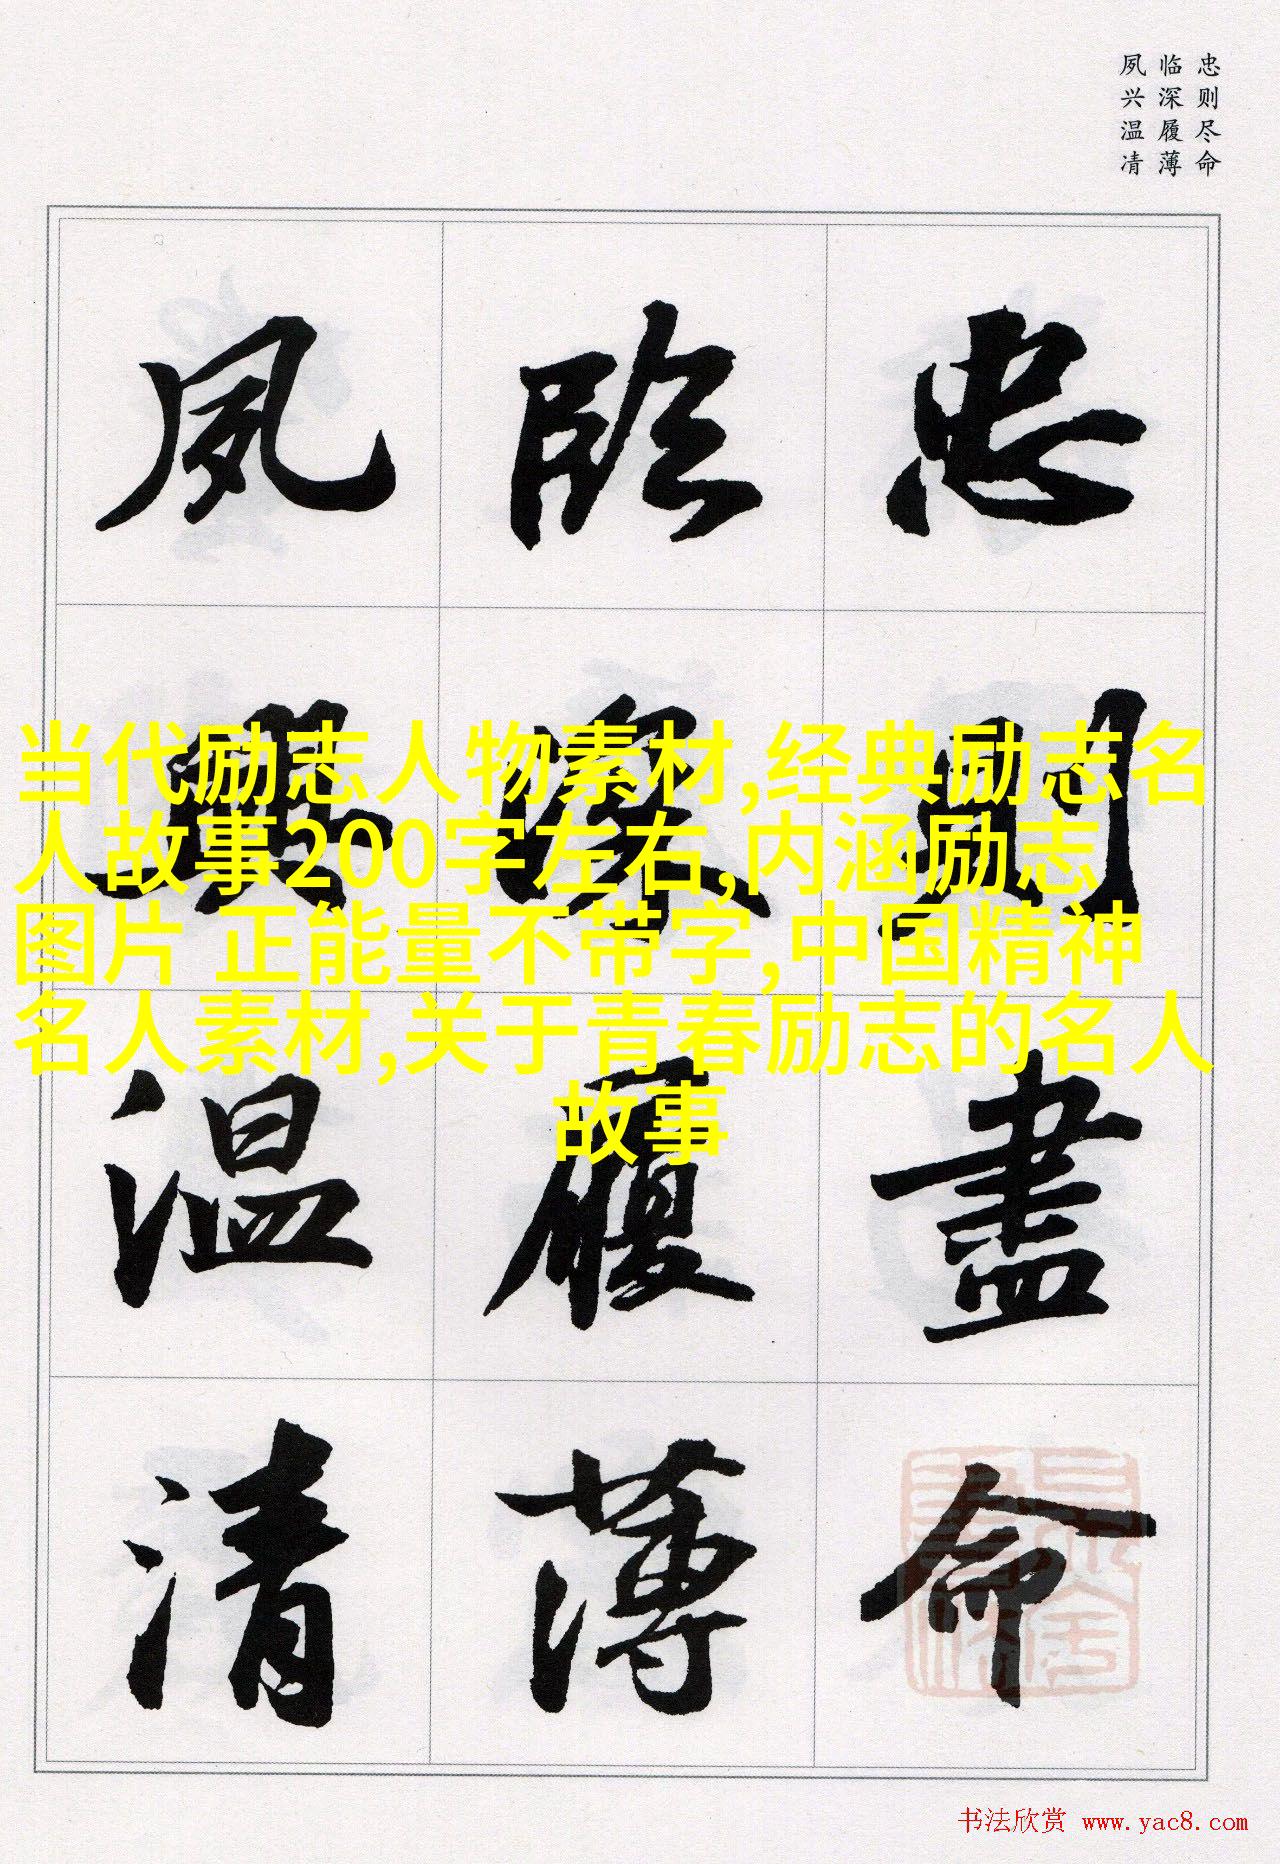 忠则尽命
临深履薄
夙兴温凊
忠則盡命
臨深履薄
夙興温清
当代励志人物素材,经典励志名
人故事200字左右,内涵励志
图片 正能量不带字,中国精神
名人素材,关于青春励志的名人
故事
书法欣赏 www.yac8.com